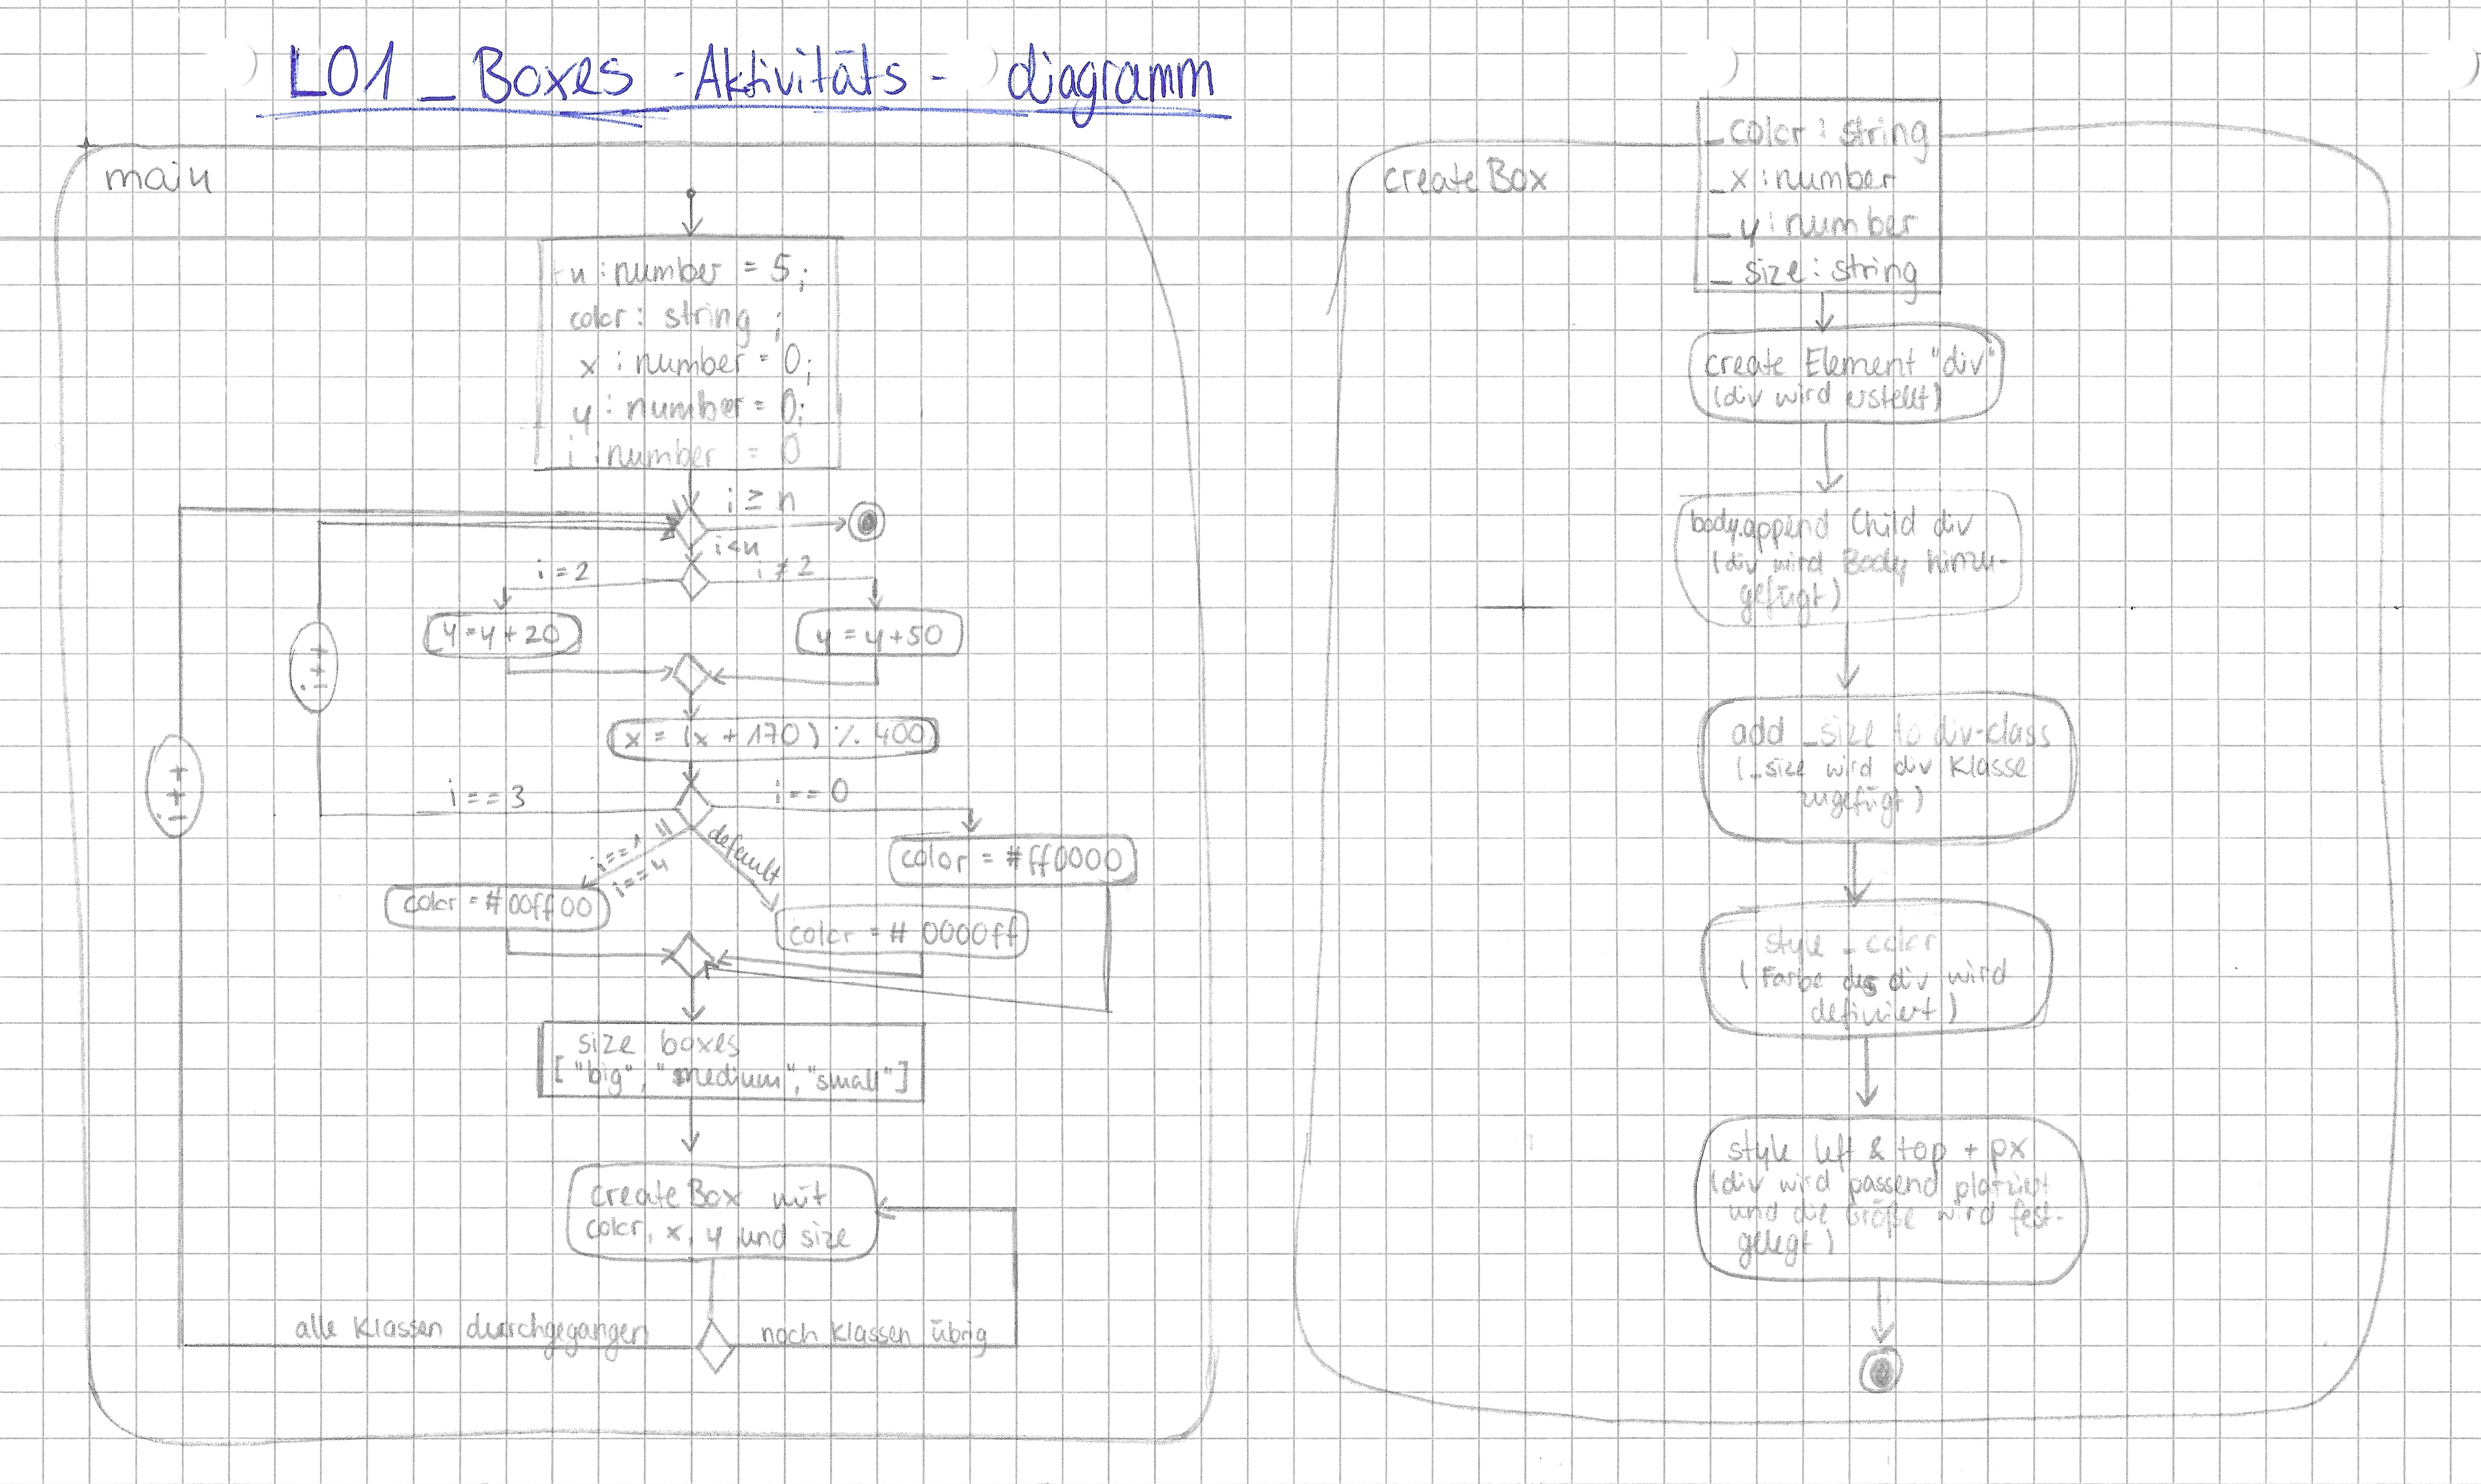 L01_Boxes -Aktivitäts- diagramm
main
n : number = 5;
color : string ;
x : number = 0;
y : number = 0;
i : number = 0
i ≥ n
i<n
i = 2
i ≠ 2
y=y+20
y = y+50
i++
x = (x + 170) % 400
i++
i == 3
i == 0
i==1 ||
i==4
default
color = #ff0000
color = #00ff00
color = # 0000ff
size boxes
["big", "medium", "small"]
createBox mit
color, x, y und size
alle Klassen durchgegangen
noch Klassen übrig
createBox
_color : string
_x : number
_y : number
_size : string
create Element "div"
(div wird erstellt)
body.append Child div
(div wird Body hinzu-
gefügt)
add _size to div-class
(_size wird div Klasse
zugefügt)
style _color
(Farbe des div wird
definiert)
style left & top + px
(div wird passend platziert
und die Größe wird fest-
gelegt)